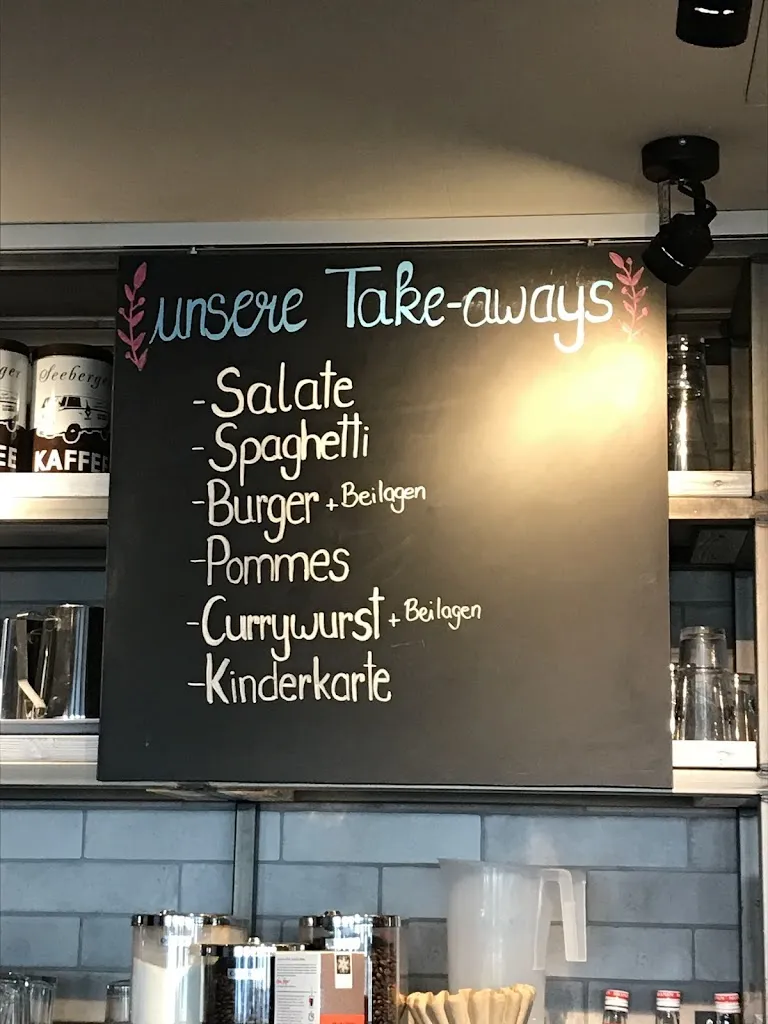 unsere Take-aways
- Salate
- Spaghetti
- Burger + Beilagen
- Pommes
- Currywurst + Beilagen
- Kinderkarte
Seeberge
KAFFEE